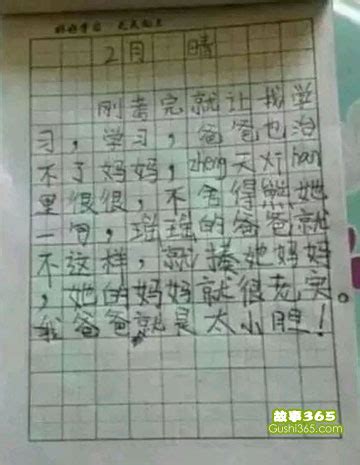 好好学习 天天向上
2月 晴
刚考完就让我学
习，学习，爸爸也治
不了妈妈，zheng天xihan
里很很，不舍得熊她
一句，瑶瑶的爸爸就
不这样，就揍她妈妈
，她的妈妈就很老实。
我爸爸就是太小胆！
故事365
Gushi365.com